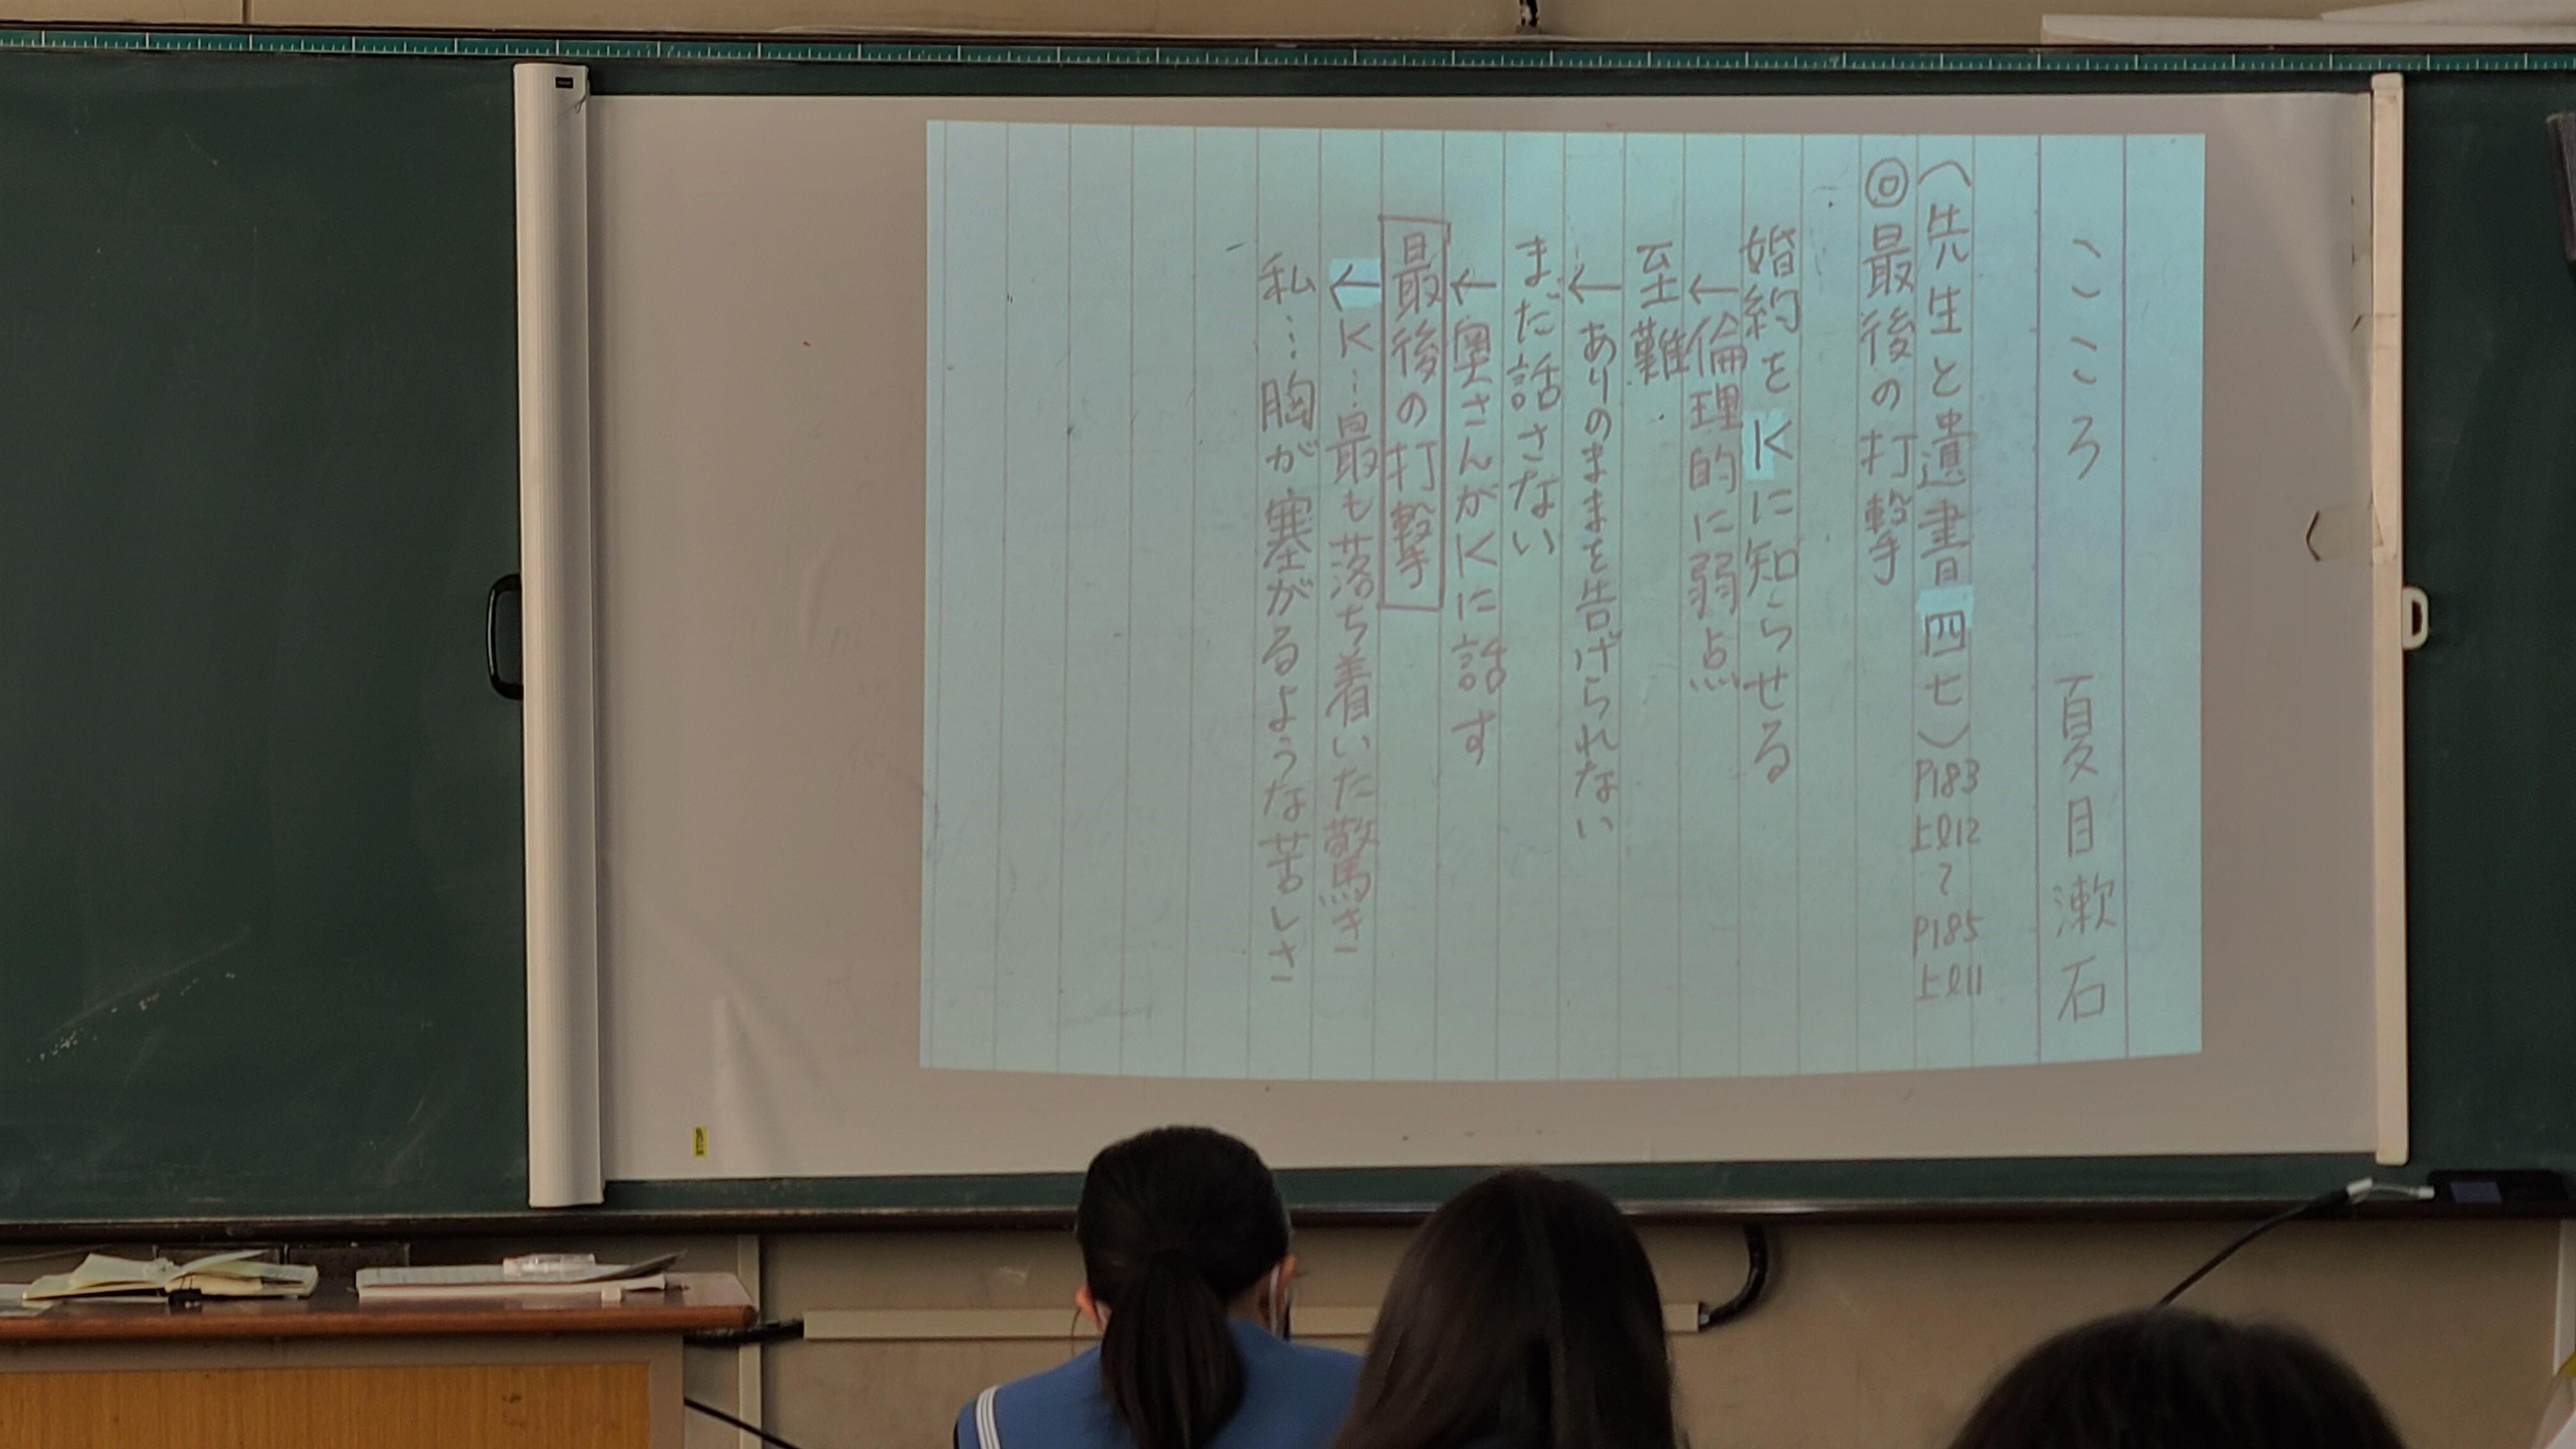 こころ　夏目漱石
（先生と遺書 四七）P183上ℓ12～P185上ℓ11
◎最後の打撃
婚約をKに知らせる
←倫理的に弱点
至難
←ありのままを告げられない
まだ話さない
←奥さんがKに話す
最後の打撃
←K…最も落ち着いた驚き
私…胸が塞がるような苦しさ
STOP